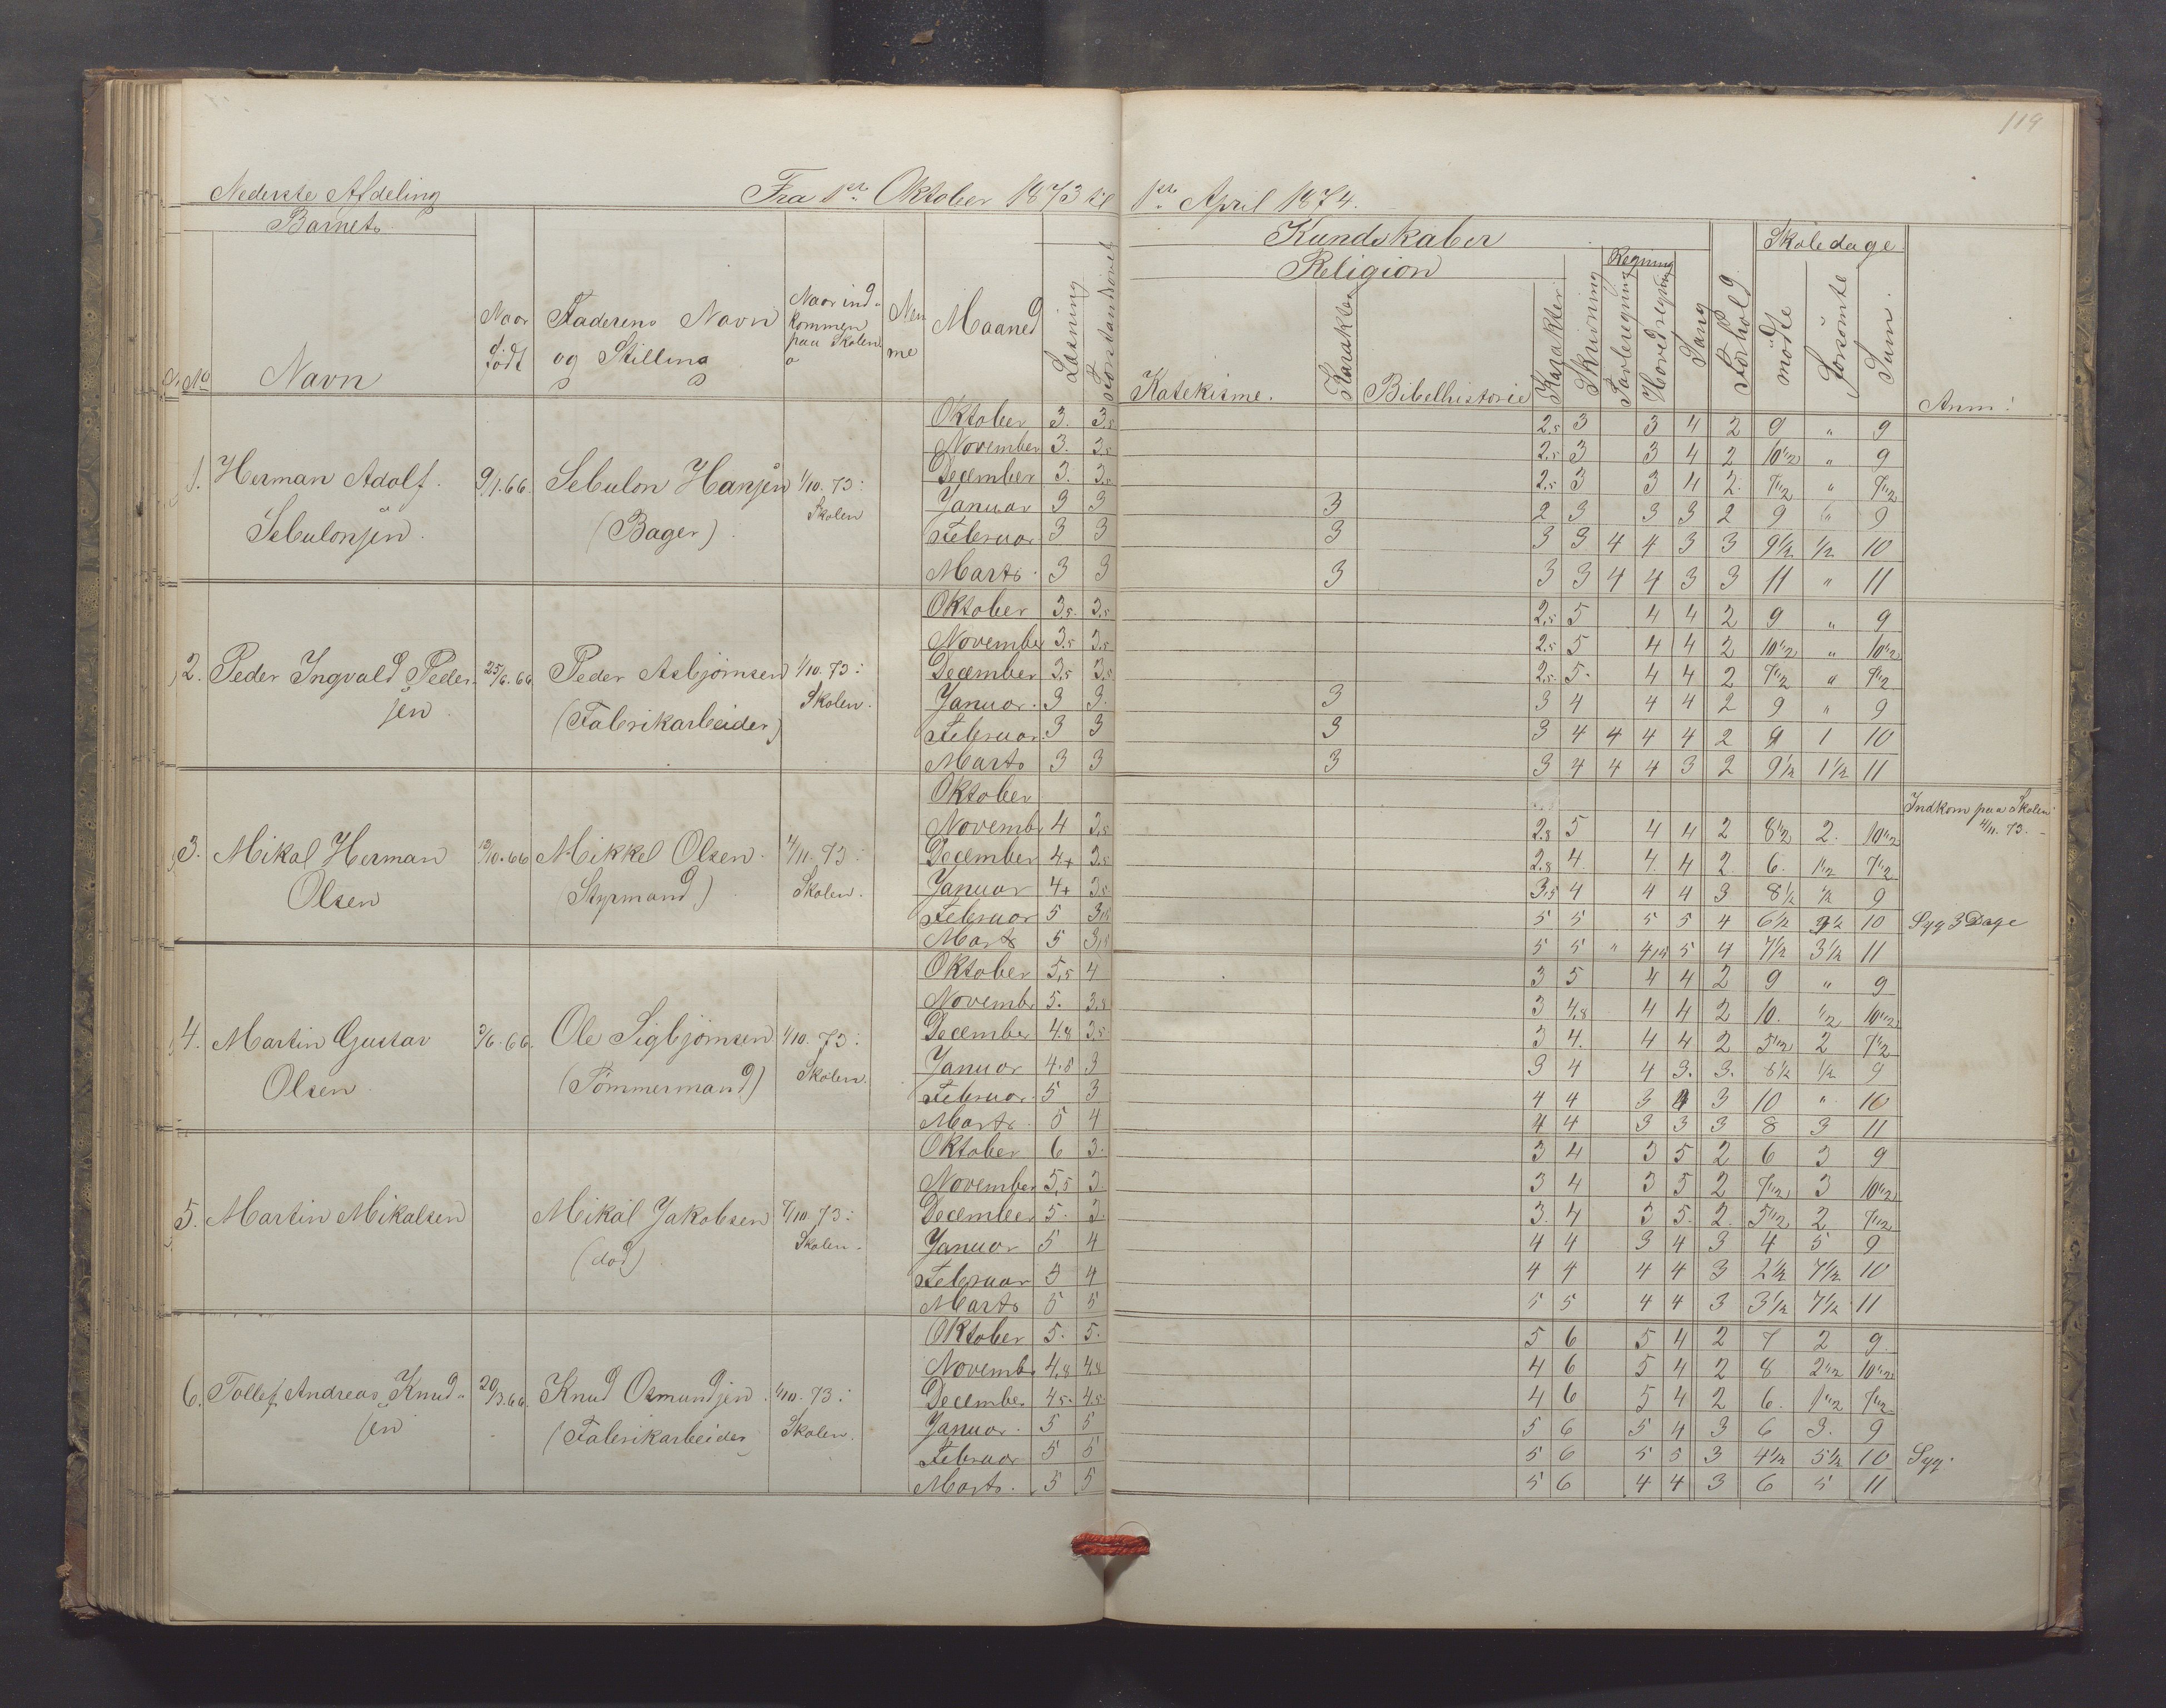 119
Nederste Afdeling Fra 1ste Oktober 1873 til 1ste April 1874.
Barnets Kundskaber Skoledage
Religion Regning
No Navn Naar født Faderens Navn og Stilling Naar indkommen paa Skolen Maaned Læsning Forstandsøvels Katekisme. Karakter Bibelhistorie Karakter Skrivning Tavleregning Hovedregning Sang Forhold mødte forsømte Sum. Anm:
1. Herman Adolf Sebulonsen. 9/1.66. Sebulon Hansen (Bager) 1/10.73: Skolen
Oktober 3. 3,5 2,5 3 3 4 2 9 " 9
November 3. 3,5 2,5 3 3 4 2 10 1/2 " 9
December 3. 3,5 2,5 3 3 4 2. 7 1/2 " 7 1/2
Januar 3 3 3 2 3 3 3 2 9 " 9
Februar 3 3 3 3 3 4 4 3 3 9 1/2 1/2 10
Marts. 3 3 3 3 3 4 4 3 3 11 " 11
2. Peder Ingvald Pedersen 25/6.66 Peder Asbjørnsen (Fabrikarbeider) 1/10.73: Skolen.
Oktober 3,5. 3,5 2,5 5 4 4 2 9 " 9
November 3,5 3,5 2,5 5 4 4 2 10 1/2 " 10 1/2
December 3,5 3,5 2,5. 5. 4 4 2 7 1/2 " 7 1/2
Januar. 3 3. 3 3 4 4 4 2 9 " 9
Februar. 3 3 3 3 4 4 4 4 2 9 1 10
Marts 3 3 3 3 4 4 4 3 2 9 1/2 1 1/2 11
3. Mikal Herman Olsen 13/10.66 Mikkel Olsen. (Styrmand) 4/11.73: Skolen.
Oktober Indkom paa Skolen 4/11.73.
Novembr 4 3,5 2,8 5 4 4 2 8 1/2 2. 10 1/2
December 4+ 3,5 2,8 4. 4. 4 2. 6. 1 1/2 7 1/2
Januar 4+ 3,5 3,5 4 4 4 3 8 1/2 1/2 9
Februar 5 3,5 5 5 5 5 4 6 1/2 3 1/2 10 Syg 3 Dage
Marts 5 3,5 5 5 " 4,5 5 4 7 1/2 3 1/2 11
4. Martin Gustav Olsen. 3/6.66. Ole Sigbjørnsen (Tømmermand) 1/10.73: Skolen.
Oktober 5,5 4 3 5 4 4 2 9 " 9
Novembr 5. 3,8 3 4,8 4 4 2 10. 1/2 10 1/2
December 4.8 3,5 3 4. 4 4 2 5 1/2 2 7 1/2
Januar 4.8 3 3 4 4 3. 3. 8 1/2 1/2 9
Februar. 5 3 4 4 3 4 3 10 " 10
Marts. 5 4 4 4 3 3 3 8 3 11
5. Martin Mikalsen Mikal Jakobsen (død) 7/10.73: Skolen.
Oktober 6 3. 3 4 3 5 2 6 3 9
November 5,5 3 3 4 3 5 2 7 1/2 3 10 1/2
December 5. 3. 3. 4 3 5. 2. 5 1/2 2 7 1/2
Januar 5 4 4 4 3 4 3 4 5 9
Februar 5 4 4 4 4 4 3 2 1/2 7 1/2 10
Marts 5 5 5 5 4 4 3 3 1/2 7 1/2 11
6. Tollef Andreas Knudsen 20/3.66. Knud Osmundsen. (Fabrikarbeider 1/10.73: Skolen.
Oktober 5. 5. 5 6 5 4 2 7 2 9.
Novembr 4,8 4,8 4 6 5 4 2 8 2 1/2 10 1/2
December 4,5. 4,5. 4 6 5 4 2 6. 1 1/2 7 1/2
Januar. 5 5 5 6 5 4 3 6 3. 9
Februar 5 5 5 6 5 5 3 4 1/2 5 1/2 10 Syg.
Marts. 5 5 5 6 4 4 3 6 5 11